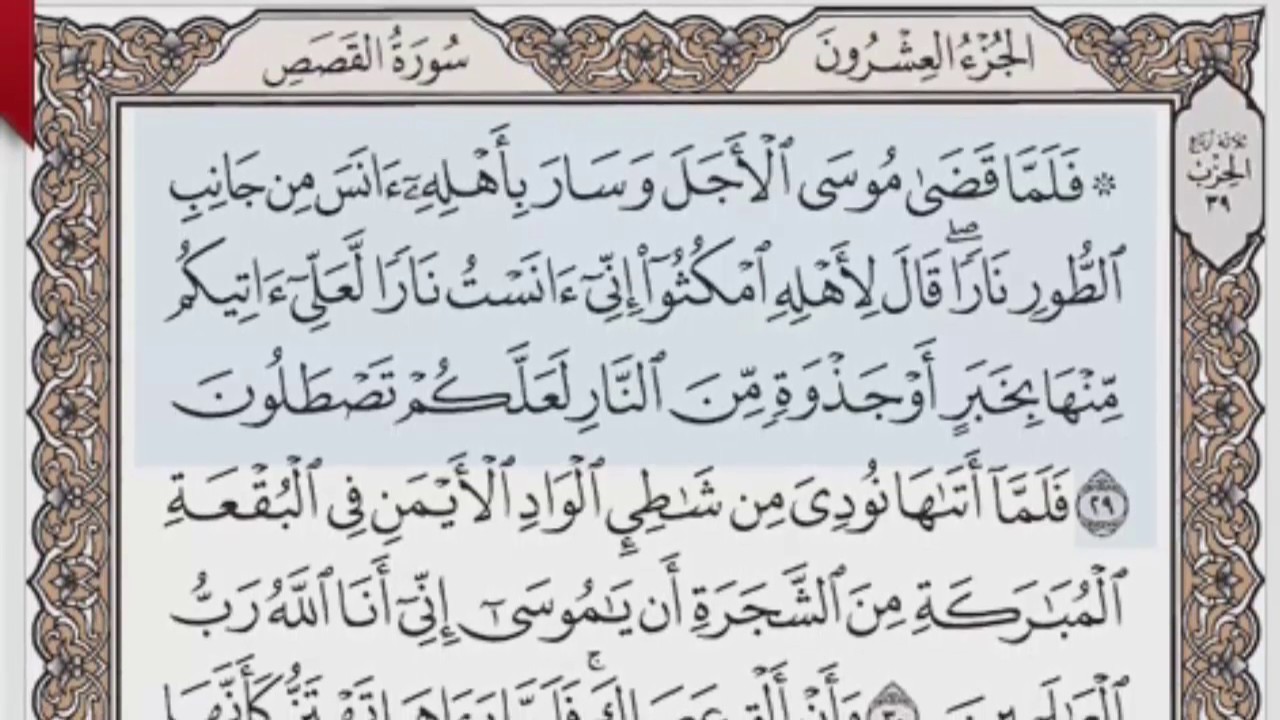 الجزء العشرون
سورة القصص
ثلاثة أرباع
الحزب
٣٩
۞ فَلَمَّا قَضَىٰ مُوسَى ٱلْأَجَلَ وَسَارَ بِأَهْلِهِۦٓ ءَانَسَ مِن جَانِبِ
ٱلطُّورِ نَارًۭاۖ قَالَ لِأَهْلِهِ ٱمْكُثُوٓا۟ إِنِّىٓ ءَانَسْتُ نَارًۭا لَّعَلِّىٓ ءَاتِيكُم
مِّنْهَا بِخَبَرٍ أَوْ جَذْوَةٍۢ مِّنَ ٱلنَّارِ لَعَلَّكُمْ تَصْطَلُونَ
٢٩ فَلَمَّآ أَتَىٰهَا نُودِىَ مِن شَـٰطِئِ ٱلْوَادِ ٱلْأَيْمَنِ فِى ٱلْبُقْعَةِ
ٱلْمُبَـٰرَكَةِ مِنَ ٱلشَّجَرَةِ أَن يَـٰمُوسَىٰٓ إِنِّىٓ أَنَا ٱللَّهُ رَبُّ
ٱلْعَـٰلَمِينَ ٣٠ وَأَنْ أَلْقِ عَصَاكَۚ فَلَمَّا رَءَاهَا تَهْتَزُّ كَأَنَّهَا